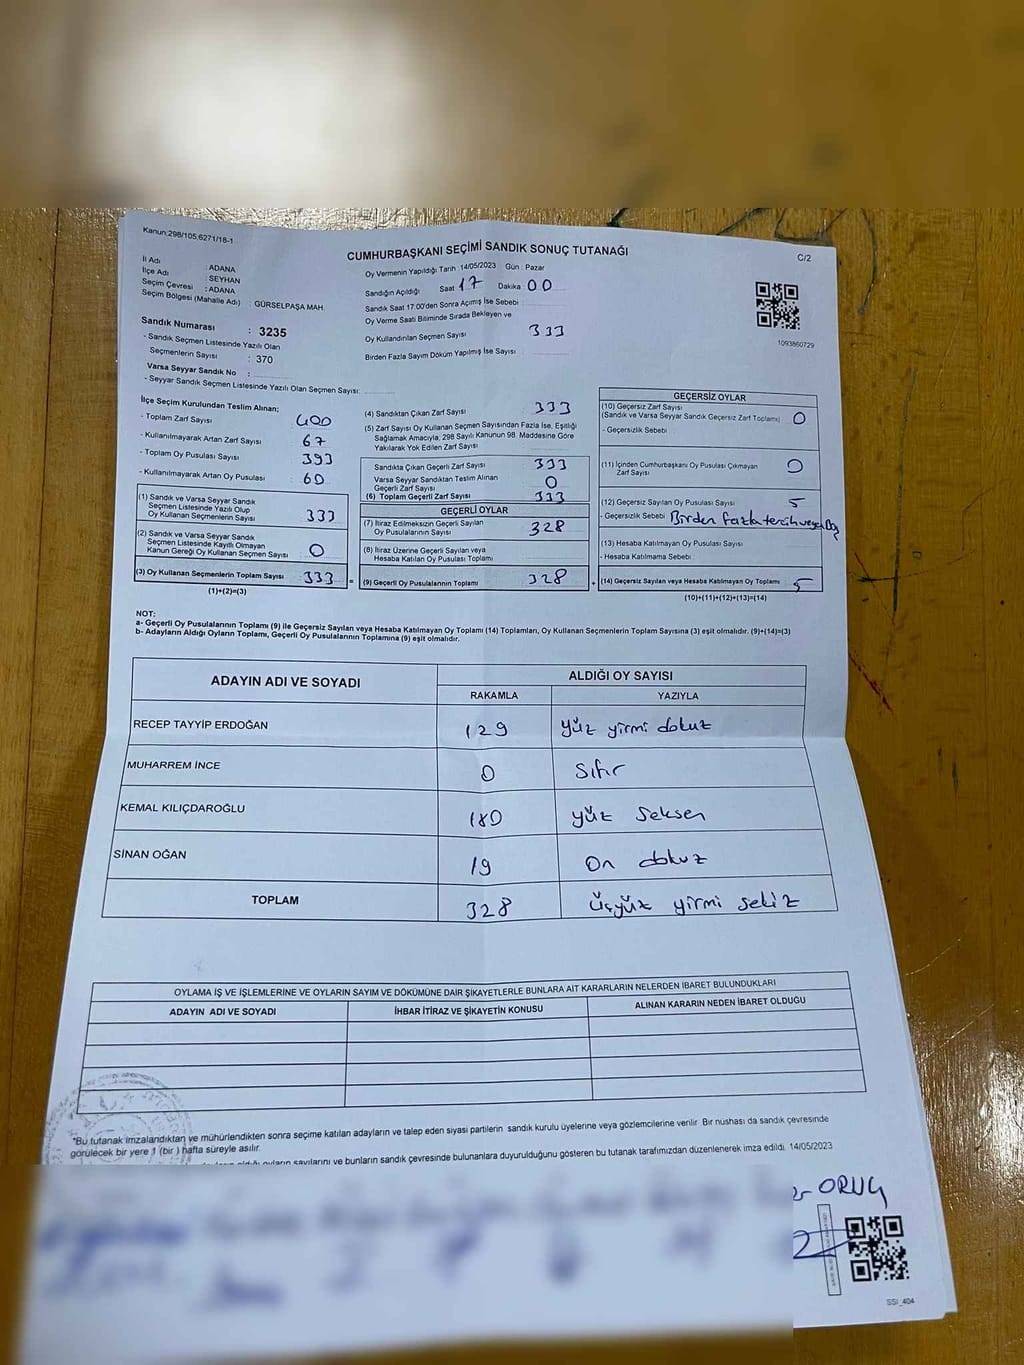 Kanun:298/105,6271/18-1
CUMHURBAŞKANI SEÇİMİ SANDIK SONUÇ TUTANAĞI
C/2
İl Adı : ADANA
İlçe Adı : SEYHAN
Seçim Çevresi : ADANA
Seçim Bölgesi (Mahalle Adı) : GÜRSELPAŞA MAH.
Oy Vermenin Yapıldığı Tarih :14/05/2023 Gün : Pazar
Sandığın Açıldığı Saat 17 Dakika 00
Sandık Saat 17:00'den Sonra Açılmış İse Sebebi :
Oy Verme Saati Bitiminde Sırada Bekleyen ve
Oy Kullandırılan Seçmen Sayısı 333
Birden Fazla Sayım Döküm Yapılmış İse Sayısı :
1093860729
Sandık Numarası : 3235
- Sandık Seçmen Listesinde Yazılı Olan
Seçmenlerin Sayısı : 370
Varsa Seyyar Sandık No :
- Seyyar Sandık Seçmen Listesinde Yazılı Olan Seçmen Sayısı:
İlçe Seçim Kurulundan Teslim Alınan;
- Toplam Zarf Sayısı 400
- Kullanılmayarak Artan Zarf Sayısı 67
- Toplam Oy Pusulası Sayısı 393
- Kullanılmayarak Artan Oy Pusulası 60
(1) Sandık ve Varsa Seyyar Sandık
Seçmen Listesinde Yazılı Olup
Oy Kullanan Seçmenlerin Sayısı 333
(2) Sandık ve Varsa Seyyar Sandık
Seçmen Listesinde Kayıtlı Olmayan
Kanun Gereği Oy Kullanan Seçmen Sayısı 0
(3) Oy Kullanan Seçmenlerin Toplam Sayısı 333 =
(1)+(2)=(3)
(4) Sandıktan Çıkan Zarf Sayısı 333
(5) Zarf Sayısı Oy Kullanan Seçmen Sayısından Fazla İse, Eşitliği
Sağlamak Amacıyla, 298 Sayılı Kanunun 98. Maddesine Göre
Yakılarak Yok Edilen Zarf Sayısı
Sandıkta Çıkan Geçerli Zarf Sayısı 333
Varsa Seyyar Sandıktan Teslim Alınan
Geçerli Zarf Sayısı 0
(6) Toplam Geçerli Zarf Sayısı 333
GEÇERLİ OYLAR
(7) İtiraz Edilmeksizin Geçerli Sayılan
Oy Pusulalarının Sayısı 328
(8) İtiraz Üzerine Geçerli Sayılan veya
Hesaba Katılan Oy Pusulası Toplamı
(9) Geçerli Oy Pusulalarının Toplamı 328 +
GEÇERSİZ OYLAR
(10) Geçersiz Zarf Sayısı
(Sandık ve Varsa Seyyar Sandık Geçersiz Zarf Toplamı) 0
- Geçersizlik Sebebi
(11) İçinden Cumhurbaşkanı Oy Pusulası Çıkmayan
Zarf Sayısı 0
(12) Geçersiz Sayılan Oy Pusulası Sayısı 5
- Geçersizlik Sebebi Birden fazla tercih
(13) Hesaba Katılmayan Oy Pusulası Sayısı
- Hesaba Katılmama Sebebi :
(14) Geçersiz Sayılan veya Hesaba Katılmayan Oy Toplamı 5
(10)+(11)+(12)+(13)=(14)
NOT:
a- Geçerli Oy Pusulalarının Toplamı (9) ile Geçersiz Sayılan veya Hesaba Katılmayan Oy Toplamı (14) Toplamları, Oy Kullanan Seçmenlerin Toplam Sayısına (3) eşit olmalıdır. (9)+(14)=(3)
b- Adayların Aldığı Oyların Toplamı, Geçerli Oy Pusulalarının Toplamına (9) eşit olmalıdır.
ADAYIN ADI VE SOYADI ALDIĞI OY SAYISI
RAKAMLA YAZIYLA
RECEP TAYYİP ERDOĞAN 129 yüz yirmi dokuz
MUHARREM İNCE 0 sıfır
KEMAL KILIÇDAROĞLU 180 yüz seksen
SİNAN OĞAN 19 On dokuz
TOPLAM 328 üçyüz yirmi sekiz
OYLAMA İŞ VE İŞLEMLERİNE VE OYLARIN SAYIM VE DÖKÜMÜNE DAİR ŞİKAYETLERLE BUNLARA AİT KARARLARIN NELERDEN İBARET BULUNDUKLARI
ADAYIN ADI VE SOYADI İHBAR İTİRAZ VE ŞİKAYETİN KONUSU ALINAN KARARIN NEDEN İBARET OLDUĞU
*Bu tutanak imzalandıktan ve mühürlendikten sonra seçime katılan adayların ve talep eden siyasi partilerin sandık kurulu üyelerine veya gözlemcilerine verilir. Bir nüshası da sandık çevresinde
görülecek bir yere 1 (bir ) hafta süreyle asılır.
oyların sayılarını ve bunların sandık çevresinde bulunanlara duyurulduğunu gösteren bu tutanak tarafımızdan düzenlenerek imza edildi. 14/05/2023
ORUÇ
SSİ_404